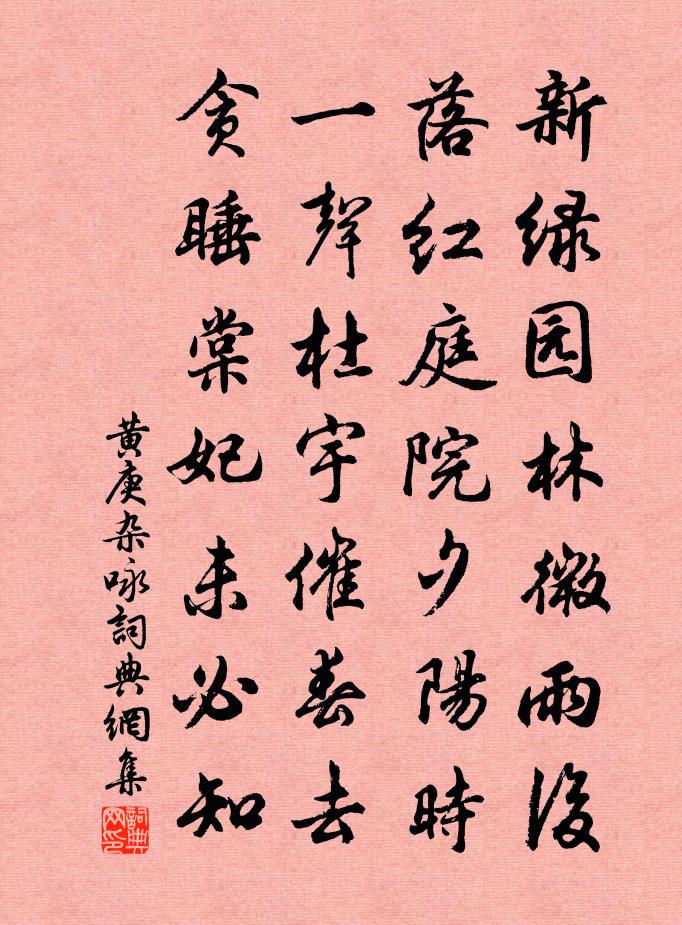 新绿园林微雨后
落红庭院夕陽時
一聲杜宇催春去
贪睡棠妃未必知
黄庚杂咏詞典網集
詞典网印